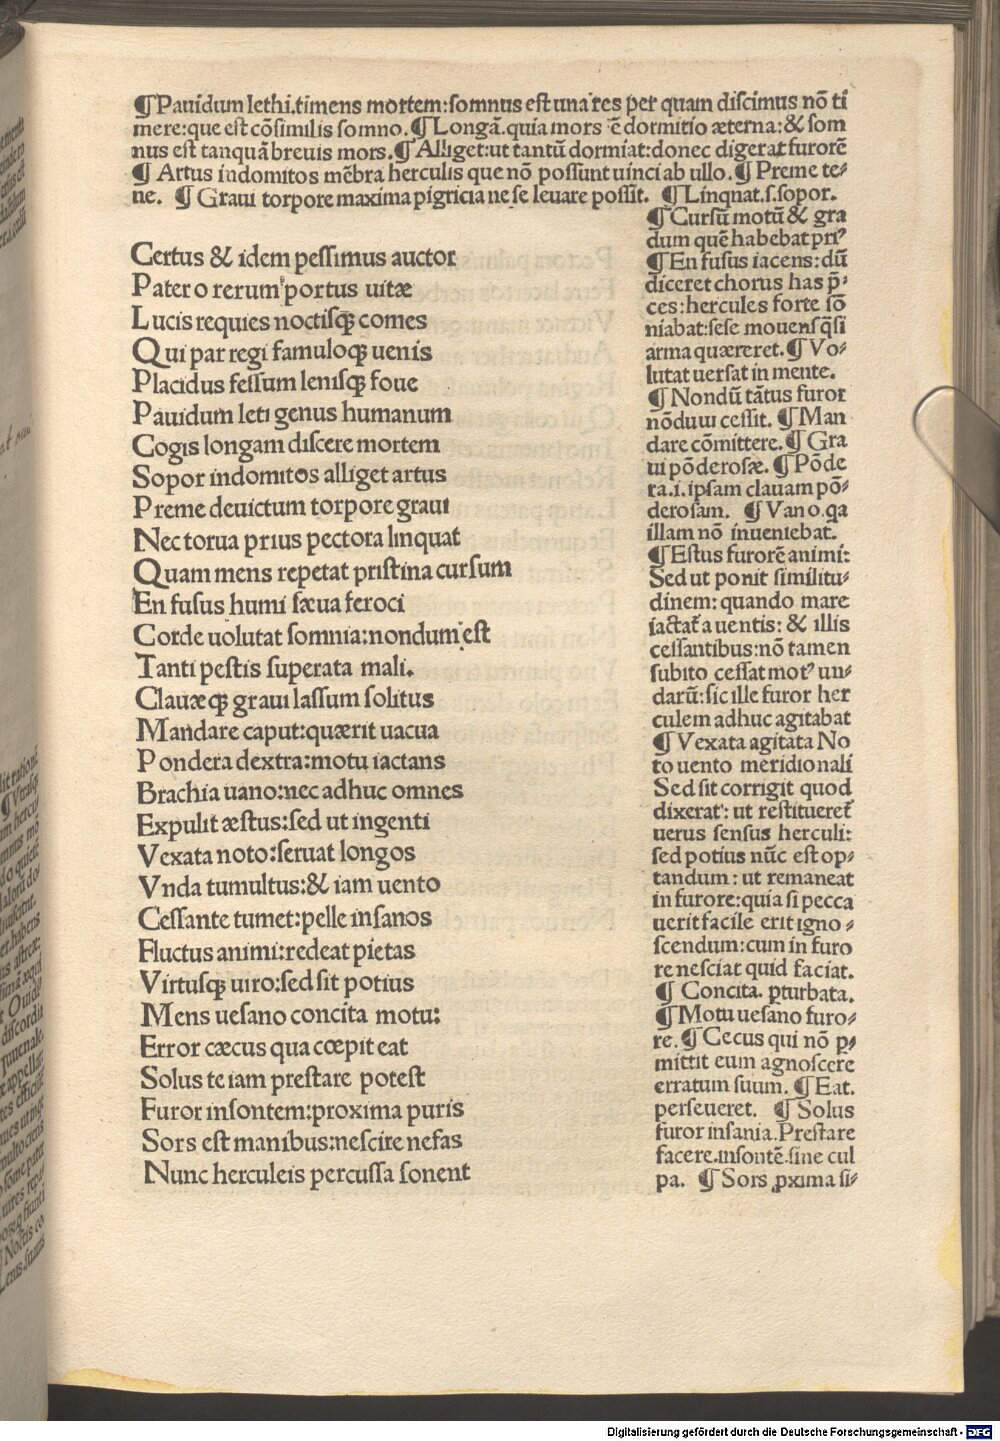 ¶Pauidum lethi.timens mortem:somnus est una res per quam discimus nō ti
mere:que est cōsimilis somno.¶Longā.quia mors ē dormitio æterna:& som
nus est tanquā breuis mors.¶Alliget:ut tantū dormiat:donec digerat furorē
¶ Artus indomitos mēbra herculis que nō possunt uinci ab ullo.¶ Preme te⸗
ne. ¶ Graui torpore maxima pigricia ne se leuare possit. ¶ Linqnat.s.sopor.
Certus & idem pessimus auctor
Pater o rerum portus uitæ
Lucis requies noctisqꝫ comes
Qui par regi famuloqꝫ uenis
Placidus fessum lenisqꝫ foue
Pauidum leti genus humanum
Cogis longam discere mortem
Sopor indomitos alliget artus
Preme deuictum torpore graui
Nec torua prius pectora linquat
Quam mens repetat pristina cursum
En fusus humi sæua feroci
Corde uolutat somnia:nondum est
Tanti pestis superata mali.
Clauæqꝫ graui lassum solitus
Mandare caput:quærit uacua
Pondera dextra:motu iactans
Brachia uano:nec adhuc omnes
Expulit æstus:sed ut ingenti
Vexata noto:seruat longos
Vnda tumultus:& iam uento
Cessante tumet:pelle insanos
Fluctus animi:redeat pietas
Virtusqꝫ uiro:sed sit potius
Mens uesano concita motu:
Error cæcus qua cœpit eat
Solus te iam prestare potest
Furor insontem:proxima puris
Sors est manibus:nescire nefas
Nunc herculeis percussa sonent
¶ Cursū motū & gra
dum quē habebat priꝰ
¶En fusus iacens:dū
diceret chorus has p̄⸗
ces:hercules forte sō
niabat:sese mouens q̄si
arma quæreret.¶ Vo⸗
lutat uersat in mente.
¶ Nondū tātus furor
nōdum cessit. ¶ Man
dare cōmittere.¶ Gra
ui pōderosæ. ¶ Pōde
ra.i.ipsam clauam pō⸗
derosam. ¶ Vano.qa
illam nō inueniebat.
¶Estus furorē animi:
Sed ut ponit similitu⸗
dinem: quando mare
iactat̄ a uentis: & illis
cessantibus:nō tamen
subito cessat motꝰ un⸗
darū:sic ille furor her
culem adhuc agitabat
¶ Vexata agitata No
to uento meridionali
Sed sit corrigit quod
dixerat: ut restitueret̄
uerus sensus herculi:
sed potius nūc est op⸗
tandum: ut remaneat
in furore:quia si pecca
uerit facile erit igno⸗
scendum:cum in furo
re nesciat quid faciat.
¶ Concita. ꝑturbata.
¶ Motu uesano furo⸗
re. ¶ Cecus qui nō ꝑ⸗
mittit eum agnoscere
erratum suum. ¶ Eat.
perseueret. ¶ Solus
furor insania.Prestare
facere.insontē.sine cul
pa. ¶ Sors ꝓxima si⸗
Digitalisierung gefördert durch die Deutsche Forschungsgemeinschaft - DFG